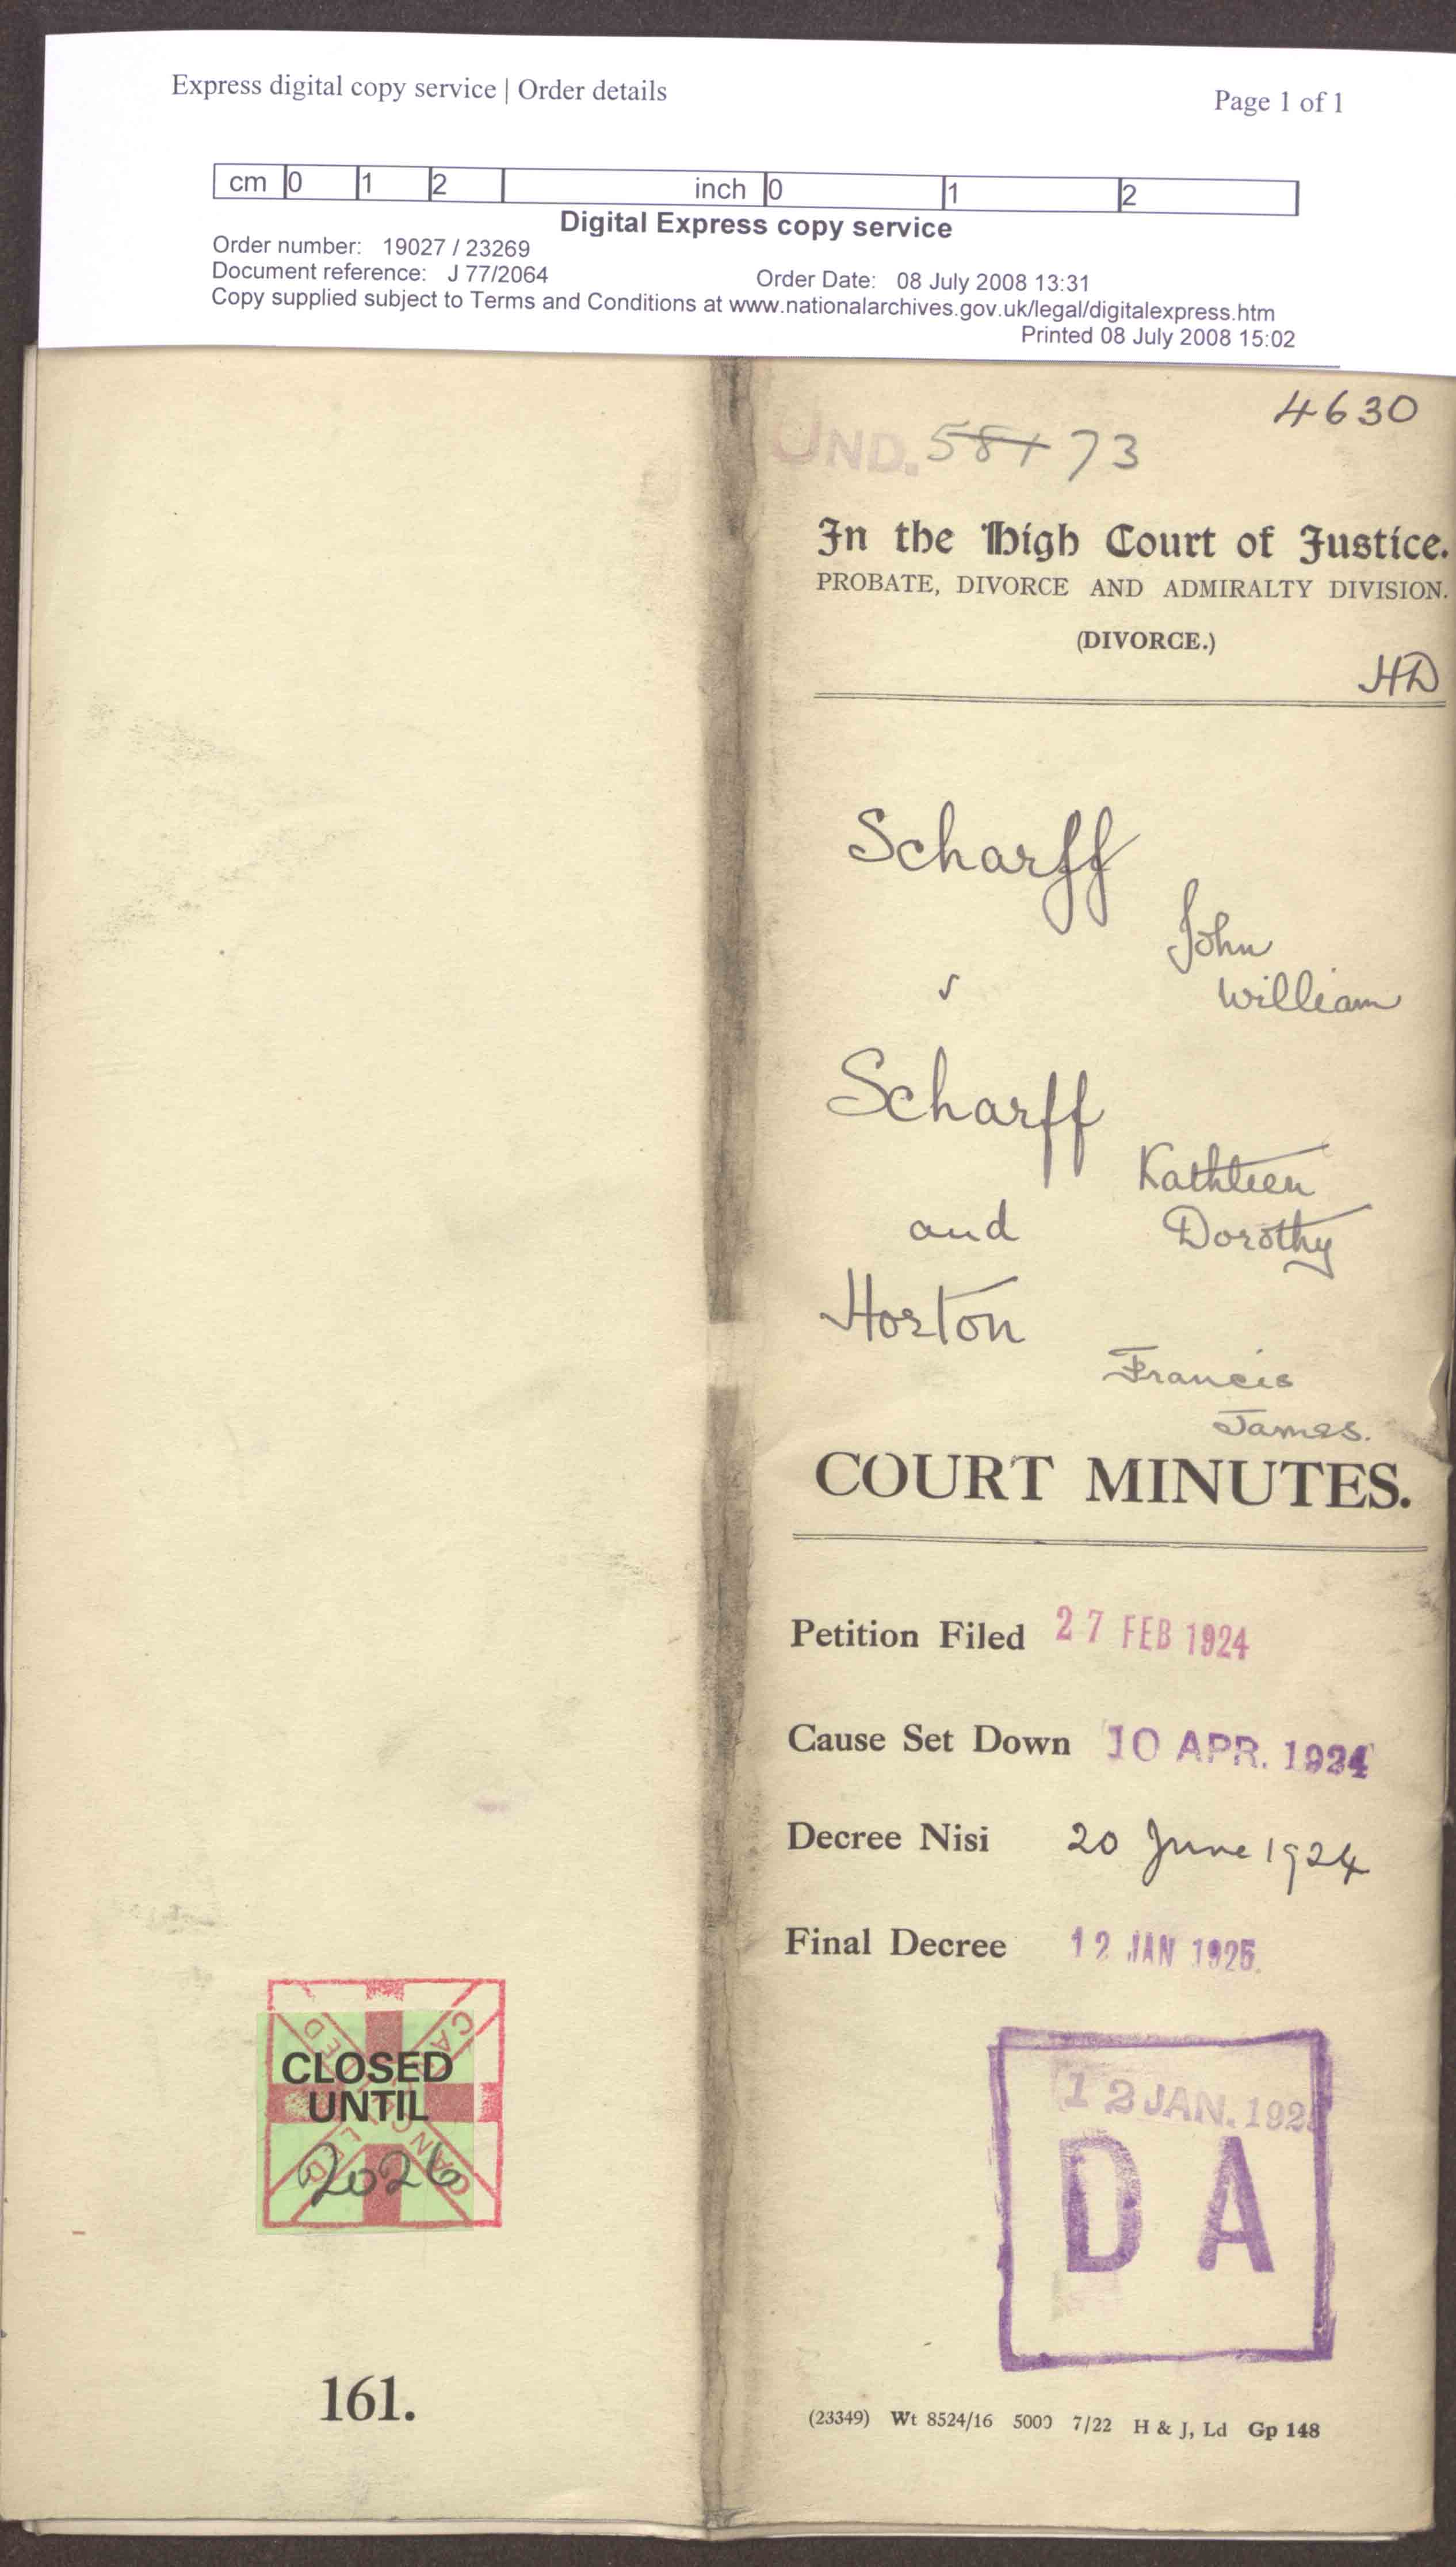 Express digital copy service | Order details
Page 1 of 1
cm 0 1 2 inch 0 1 2
Digital Express copy service
Order number: 19027 / 23269
Document reference: J 77/2064
Order Date: 08 July 2008 13:31
Copy supplied subject to Terms and Conditions at www.nationalarchives.gov.uk/legal/digitalexpress.htm
Printed 08 July 2008 15:02
4630
UND. 73
In the High Court of Justice.
PROBATE, DIVORCE AND ADMIRALTY DIVISION.
(DIVORCE.)
HD
Scharff
John
William
v
Scharff
Kathleen
and Dorothy
Horton
Francis
James.
COURT MINUTES.
Petition Filed 27 FEB 1924
Cause Set Down 10 APR. 1924
Decree Nisi 20 June 1924
Final Decree 12 JAN 1925.
12 JAN. 192
D A
(23349) Wt 8524/16 5000 7/22 H & J, Ld Gp 148
CANCELLED
CLOSED
UNTIL
2026
CANCELLED
161.